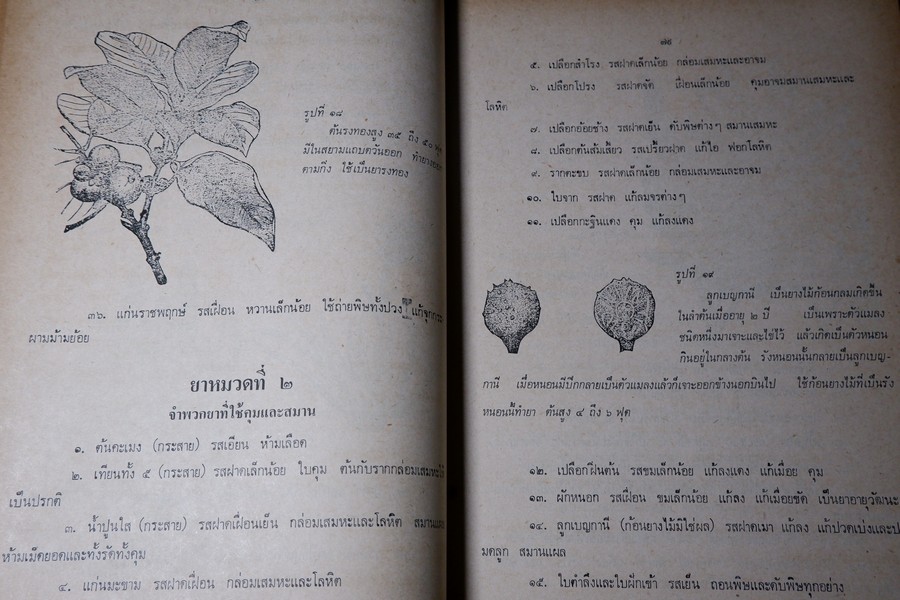 รูปที่ ๑๘
ต้นรงทองสูง ๓๕ ถึง ๕๐ ฟุต
มีในสยามแถบตวันออก ทำยาง
ตามกิ่ง ใช้เป็นยารงทอง
๓๖. แก่นราชพฤกษ์ รสเฝื่อน หวานเล็กน้อย ใช้ถ่ายพิษทั้งปวง แก้
ผามม้ามย้อย
ยาหมวดที่ ๒
จำพวกยาที่ใช้คุมและสมาน
๑. ต้นคะเมง (กระสาย) รสเอียน ห้ามเลือด
๒. เทียนทั้ง ๕ (กระสาย) รสฝาดเล็กน้อย ใบคุม ต้นกับรากกล่อมเสมหะ
เป็นปรกติ
๓. น้ำปูนใส (กระสาย) รสฝาดเฝื่อนเย็น กล่อมเสมหะและโลหิต สมาน
ห้ามเม็ดยอดและทั้งรัดทั้งคุม
๔. แก่นมะขาม รสฝาดเฝื่อน กล่อมเสมหะและโลหิต
๗๕
๕. เปลือกสำโรง รสฝาดเล็กน้อย กล่อมเสมหะและอาจม
๖. เปลือกโปรง รสฝาดจัด เฝื่อนเล็กน้อย คุมอาจมสมานเสมหะและ
โลหิต
๗. เปลือกอ้อยช้าง รสฝาดเย็น ดับพิษต่างๆ สมานเสมหะ
๘. เปลือกต้นส้มเสี้ยว รสเปรี้ยวฝาด แก้ไอ ฟอกโลหิต
๙. รากตะขบ รสฝาดเล็กน้อย กล่อมเสมหะและอาจม
๑๐. ใบจาก รสฝาด แก้ลมจรต่างๆ
๑๑. เปลือกกะฐินแดง คุม แก้ลงแดง
รูปที่ ๑๙
ลูกเบญกานี เป็นยางไม้ก้อนกลมเกิดขึ้น
ในลำต้นเมื่ออายุ ๒ ปี เป็นเพราะตัวแมลง
ชนิดหนึ่งมาเจาะและไข่ไว้ แล้วเกิดเป็นตัวหนอน
กินอยู่ในกลางต้น รังหนอนนั้นกลายเป็นลูกเบญ-
กานี เมื่อหนอนมีปีกกลายเป็นตัวแมลงแล้วก็เจาะออกข้างนอกบินไป ใช้ก้อนยางไม้ที่เป็นรัง
หนอนนี้ทำยา ต้นสูง ๔ ถึง ๖ ฟุต
๑๒. เปลือกฝิ่นต้น รสขมเล็กน้อย แก้ลงแดง แก้เมื่อย คุม
๑๓. ผักหนอก รสเฝื่อน ขมเล็กน้อย แก้ลง แก้เมื่อยขัด เป็นยาอายุวัฒนะ
๑๔. ลูกเบญกานี (ก้อนยางไม้มิใช่ผล) รสฝาดเมา แก้ลง แก้ปวดเบ่งและ
มดลูก สมานแผล
๑๕. ใบตำลึงและใบผักเข้า รสเย็น ถอนพิษและดับพิษทุกอย่าง